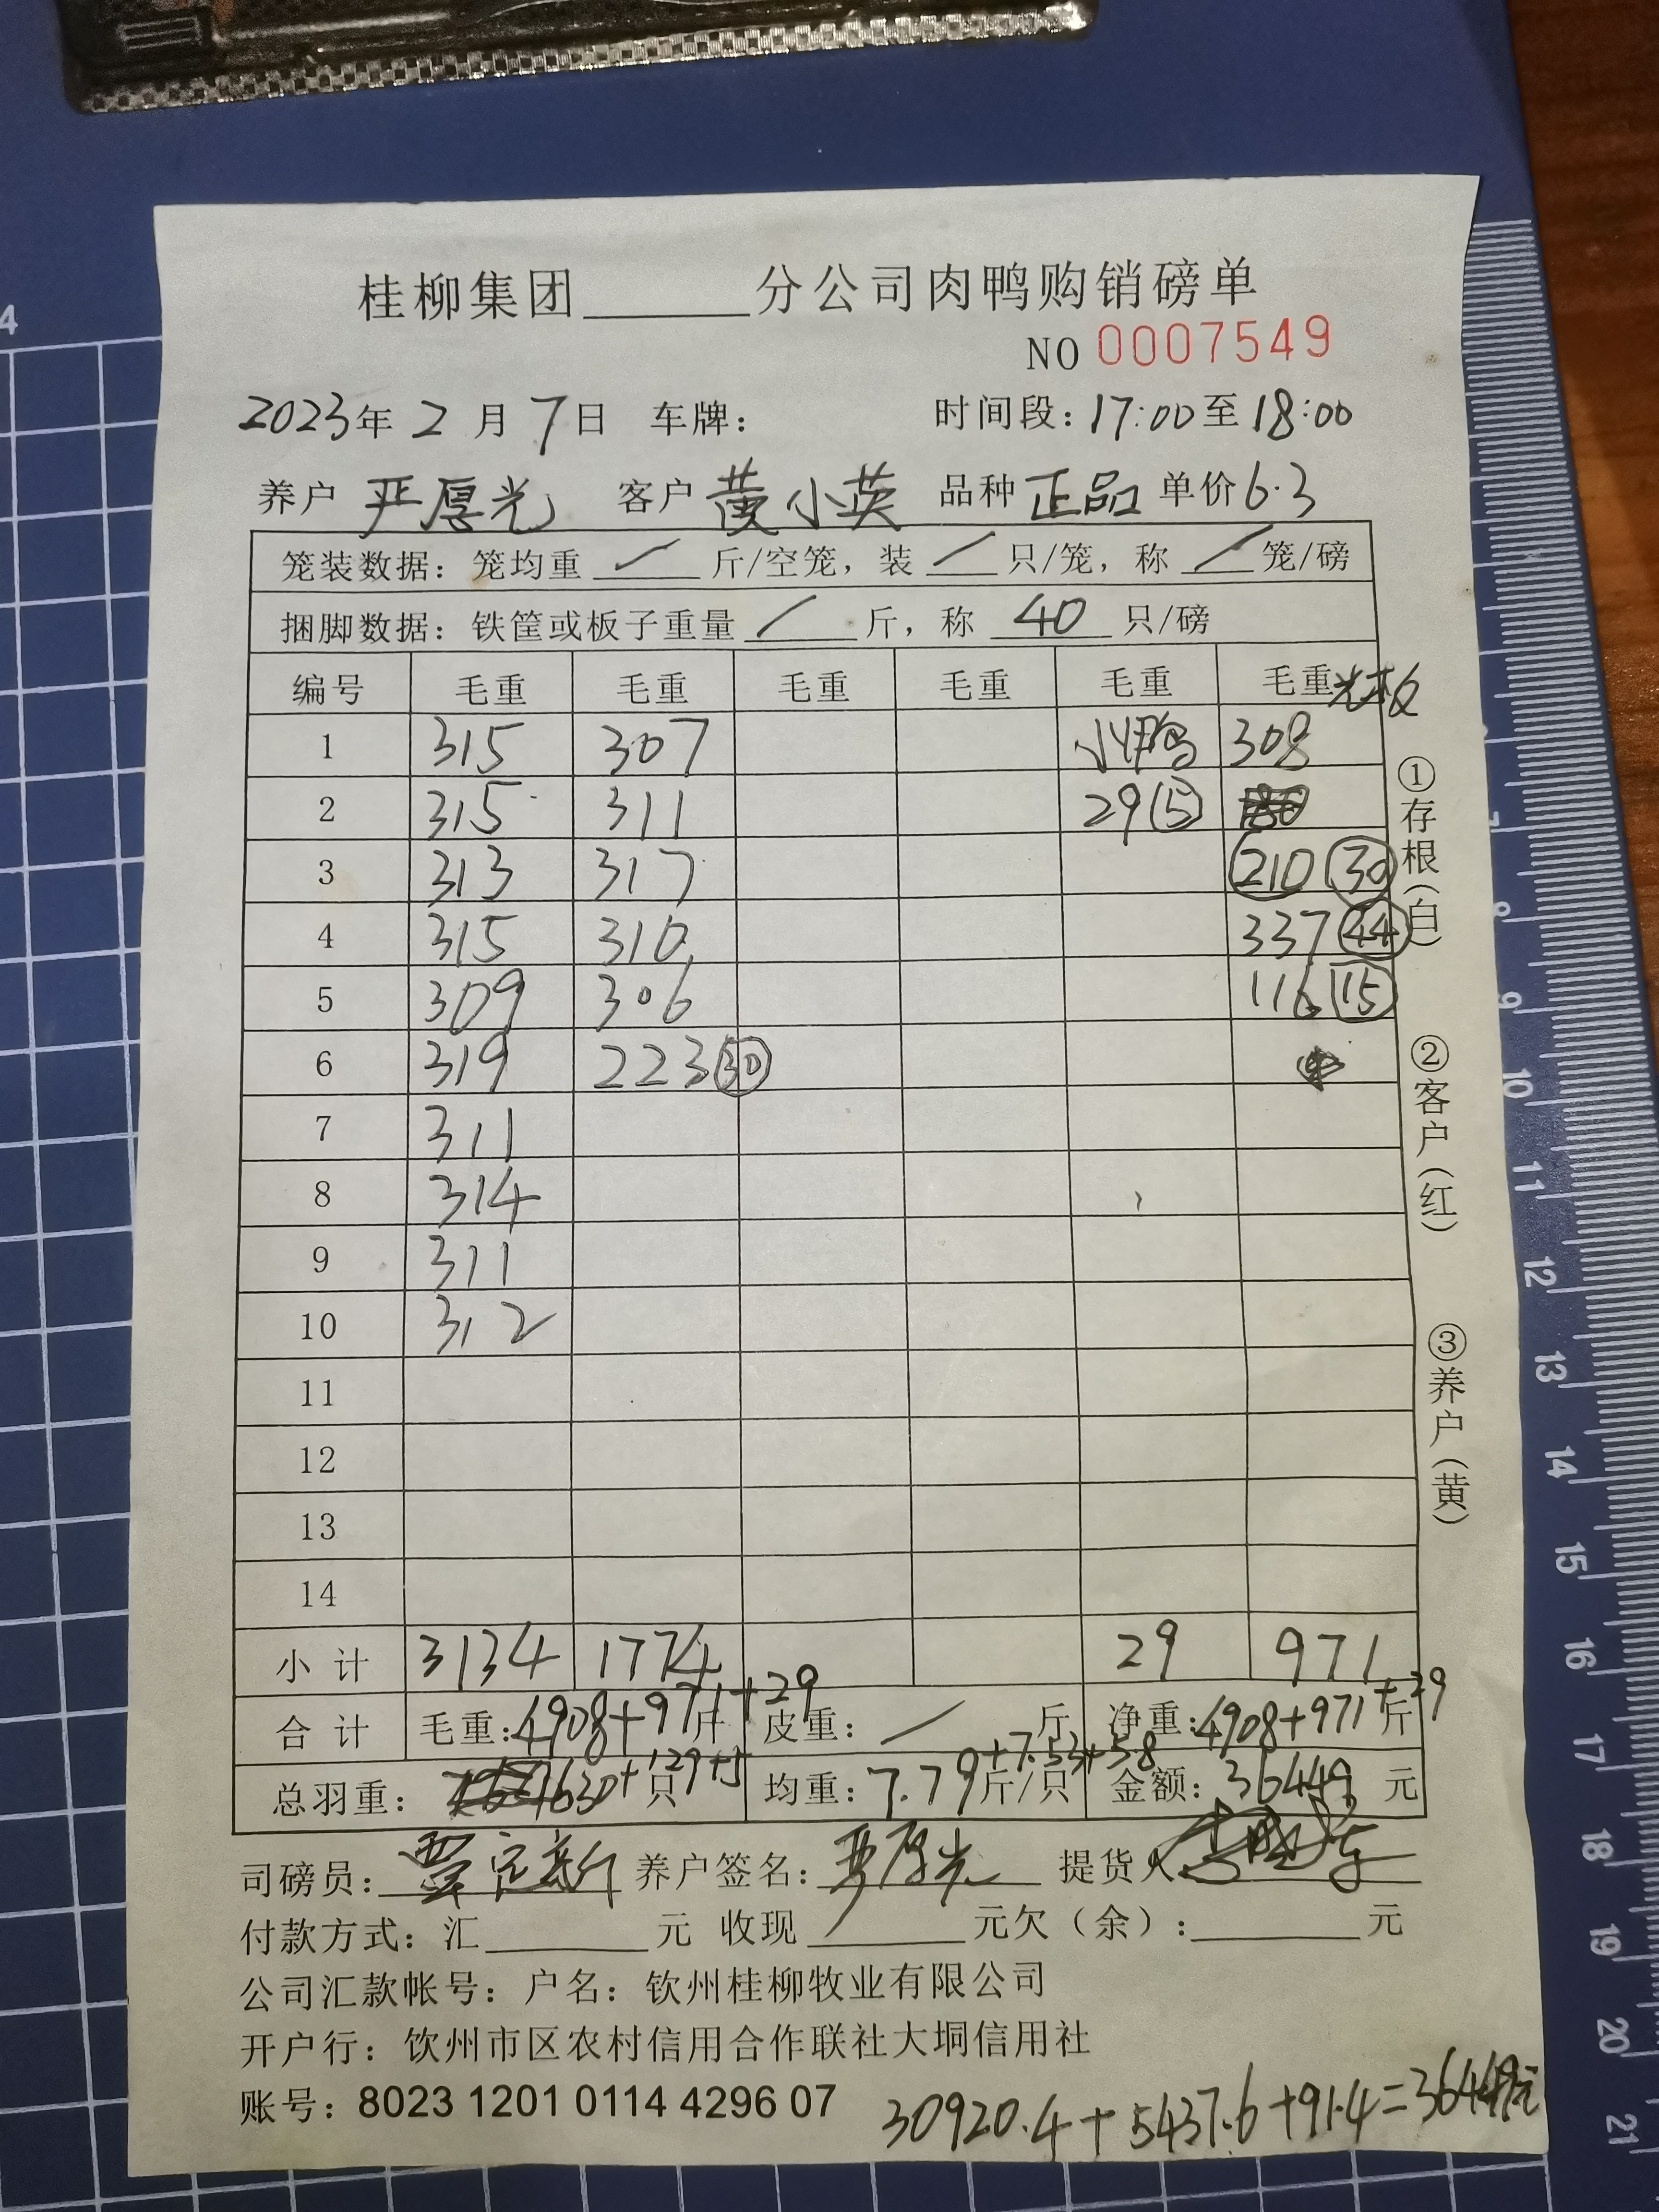 桂柳集团______分公司肉鸭购销磅单
NO 0007549
2023年 2 月 7日 车牌： 时间段：17:00至18:00
养户 严厚光 客户 黄小英 品种 正品 单价6.3
笼装数据：笼均重 / 斤/空笼，装 / 只/笼，称 / 笼/磅
捆脚数据：铁筐或板子重量 / 斤，称 40 只/磅
编号 毛重 毛重 毛重 毛重 毛重 毛重 光板
1 315 307 小鸭 308
2 315 311 29 (5)
3 313 317 210 (30)
4 315 310 337 (44)
5 309 306 116 (15)
6 319 223 (30)
7 311
8 314
9 311
10 312
11
12
13
14
小计 3134 1774 29 971
合计 毛重：4908+971+29斤 皮重：/ 斤 净重：4908+971+29斤
总羽重： 630+129+5 只 均重：7.79+7.53+5.8 斤/只 金额：36449 元
司磅员： 养户签名：严厚光 提货人
付款方式：汇______元 收现______元欠（余）：______元
公司汇款帐号：户名：钦州桂柳牧业有限公司
开户行：钦州市区农村信用合作联社大垌信用社
账号：8023 1201 0114 4296 07
30920.4+5437.6+91.4=36449元
①存根（白）
②客户（红）
③养户（黄）
4
7
8
9
10
11
12
13
14
15
16
17
18
19
20
21